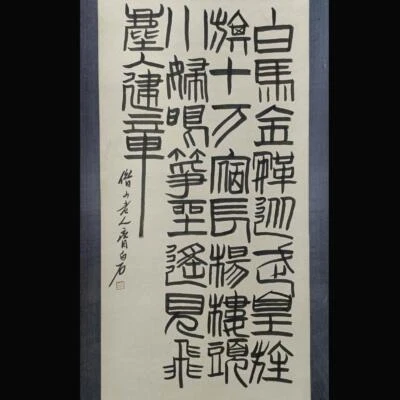 白馬金鞍從武皇旌
旗十万宿長楊樓頭
小婦鳴箏坐遙見飛
塵入建章
借山老人齊白石